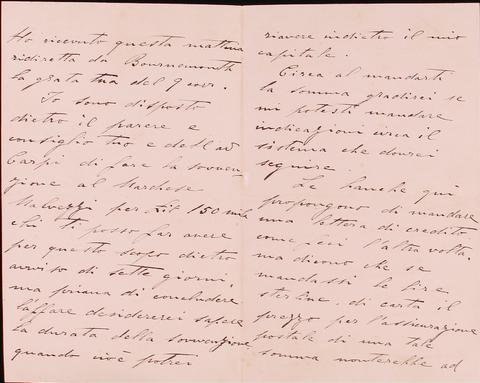 Ho ricevuto questa mattina
ridiretta da Bournemouth
la grata tua del 9 corr.
Io sono disposto
dietro il parere e
consiglio tuo e dell'avv
Carpi di fare la sovven
zione al Marchese
Malvezzi per Lit 150 mila
che ti posso far avere
per questo scopo dietro
avviso di sette giorni,
ma prima di concludere
l'affare desidererei sapere
la durata della sovvenzione
quando cioè potrei
riavere indietro il mio
capitale.
Circa al mandarti
la somma gradirei se
mi potesti mandare
indicazioni circa il
sistema che dovrei
seguire.
Le banche qui
propongono di mandare
una lettera di credito
come feci l'altra volta.
ma dicono che se
mandassi le lire
sterline di carta il
prezzo per l'assicurazione
postale di una tale
somma monterebbe ad